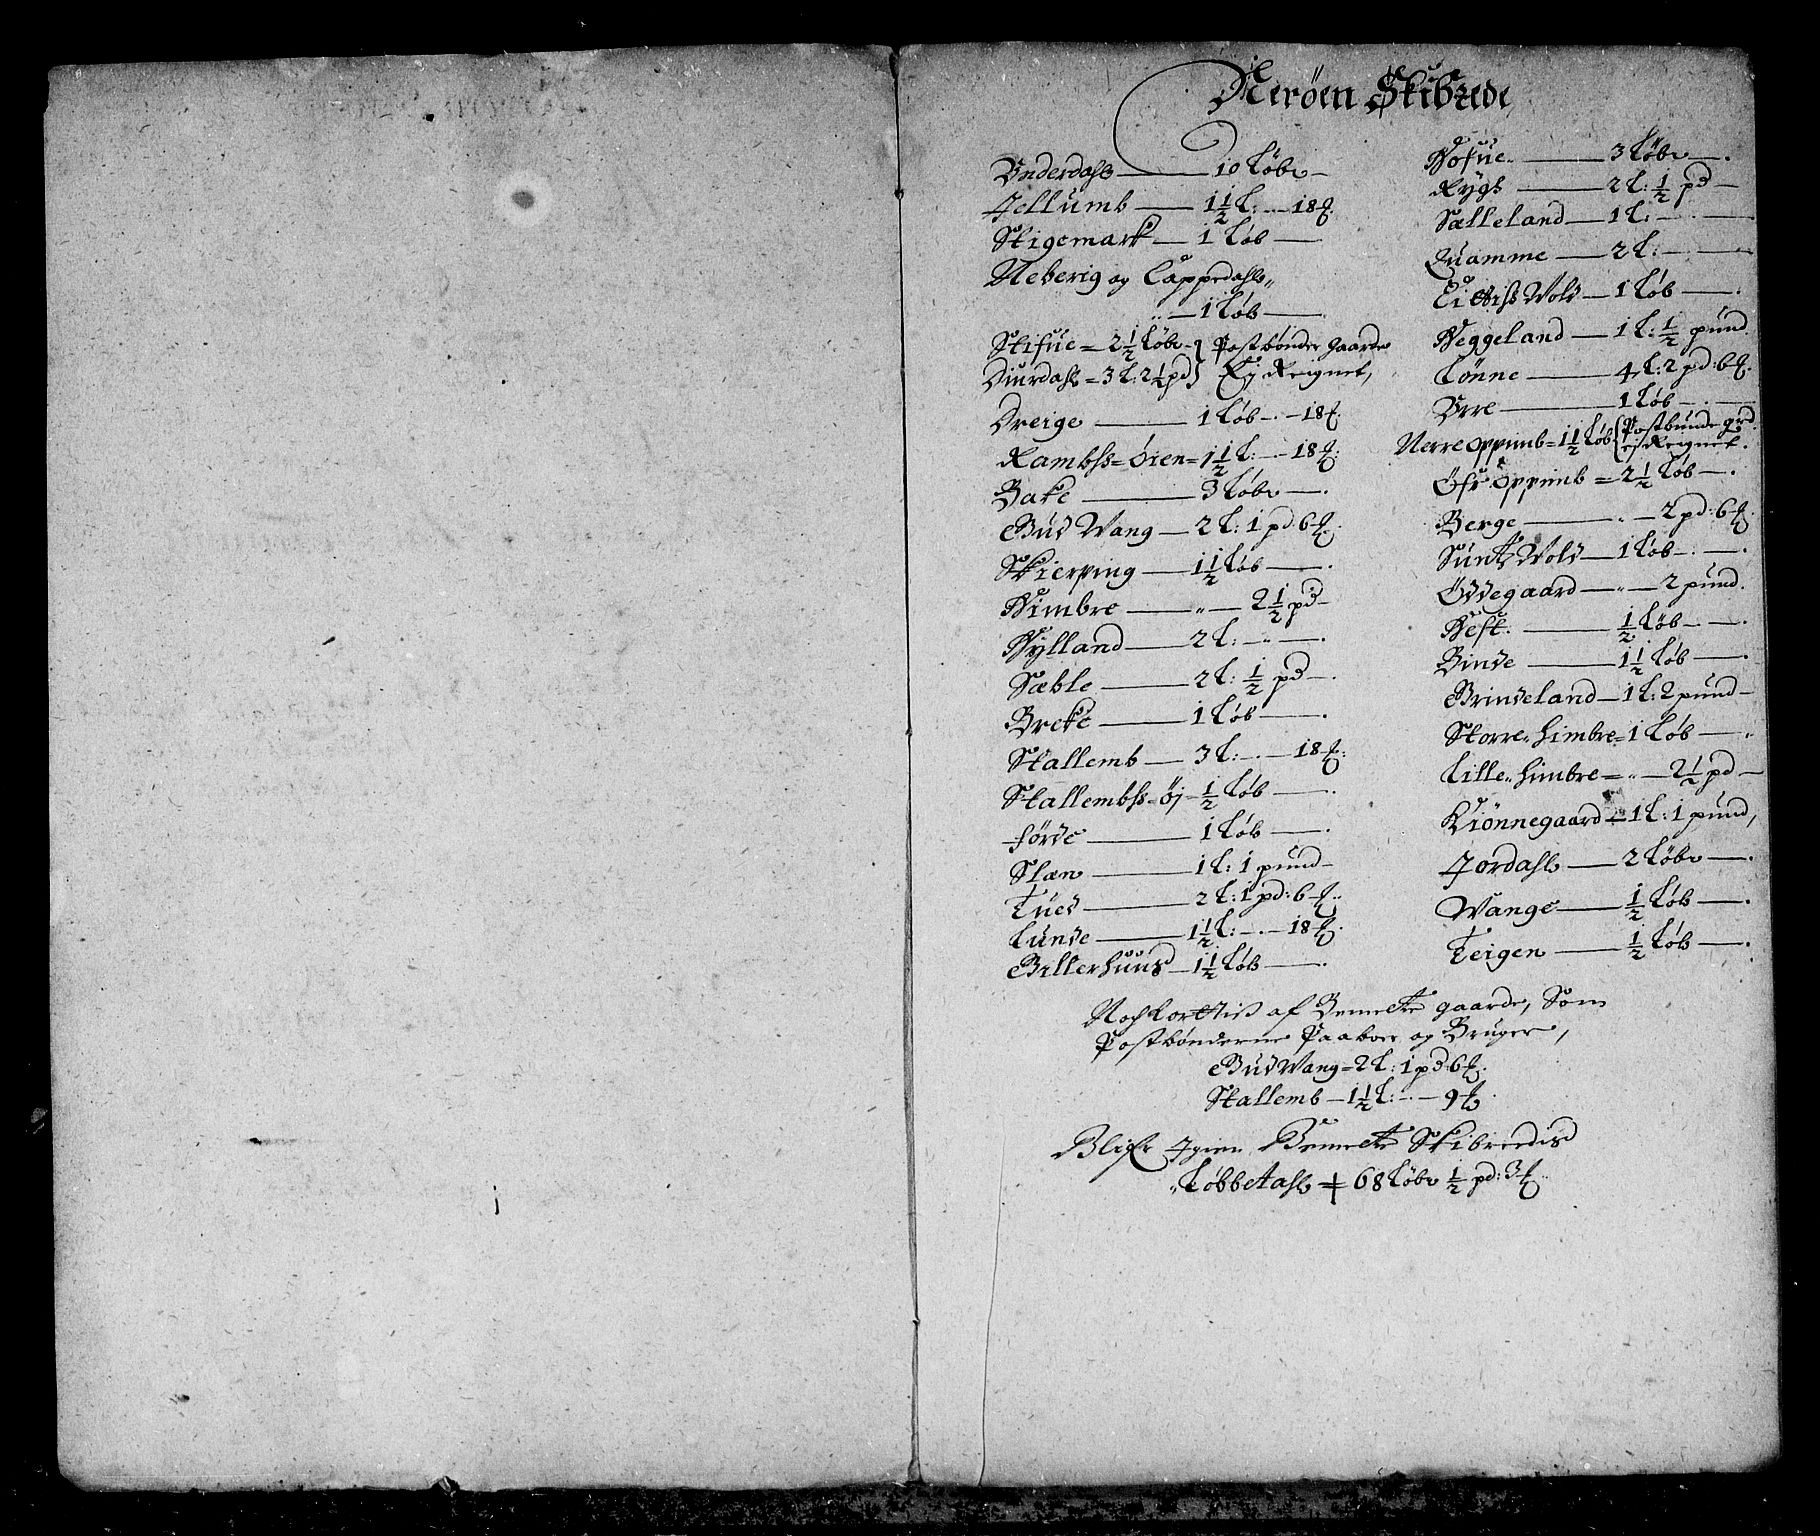 Nerøen Skibrede
Vnderdahl — 10 Løbe —
Jellumb — 1½ L: — 18 ℔.
Stigemark — 1 Løb —
Neberig og Cappedahl
„ — 1 Løb —
Stifue = 2½ Løbe } Postbønder gaarde
Diurdahl = 3 L: 2¼ pd } Ej Reignet,
Dreige — 1 Løb — 18 ℔.
Rambss = Øien = 1½ L: — 18 ℔.
Bake — 3 Løbe —
Gud Wang — 2 L: 1 pd: 6 ℔.
Skierping — 1½ Løb —
Himbre — „ — 2½ pd —
Hylland — 2 L: — „ —
Sæble — 2 L: ½ pd —
Breke — 1 Løb —
Stallemb — 3 L: — 18 ℔.
Stallembss = Øj — ½ Løb —
Førde — 1 Løb —
Slæn — 1 L: 1 pund —
Tued — 2 L: 1 pd: 6 ℔.
Lunde — 1½ L: — 18 ℔.
Gillerhuus — 1½ Løb —
Hofue — 3 Løbe —
Rygh — 2 L: ½ pd —
Sælleland — 1 L: —
Quamme — 2 L: —
Wold — 1 Løb —
Heggeland — 1 L: ½ pund
Lønne — 4 L: 2 pd: 6 ℔.
Vrre — 1 Løb —
Nerre Oppimb = 1½ Løb { Postbunde grd
ej Reignet.
Ofr Oppimb = 2½ Løb —
Berge — „ — 2 pd: 6 ℔.
Sundtz Wold — 1 Løb —
Ødegaard — „ — 2 pund.
Heft. — ½ Løb —
Binde — 1½ Løb —
Grindeland — 1 L: 2 pund —
Storre „ himbre = 1 Løb —
Lille „ himbre = „ — 2½ pd —
Kiønnegaard — 1 L: 1 pund,
Jordahl — 2 Løbe —
Wange — ½ Løb —
Teigen — ½ Løb —
Noch kortis af Bemelte gaarde, Som
Postbønderne Paaboer og Bruger,
Gud Wang = 2 L: 1 pd: 6 ℔.
Stallemb — 1½ L: — 9 ℔
Blifr Igien Bemelte Skibredis
Løbbetahl = 68 Løbe ½ pd: 3 ℔